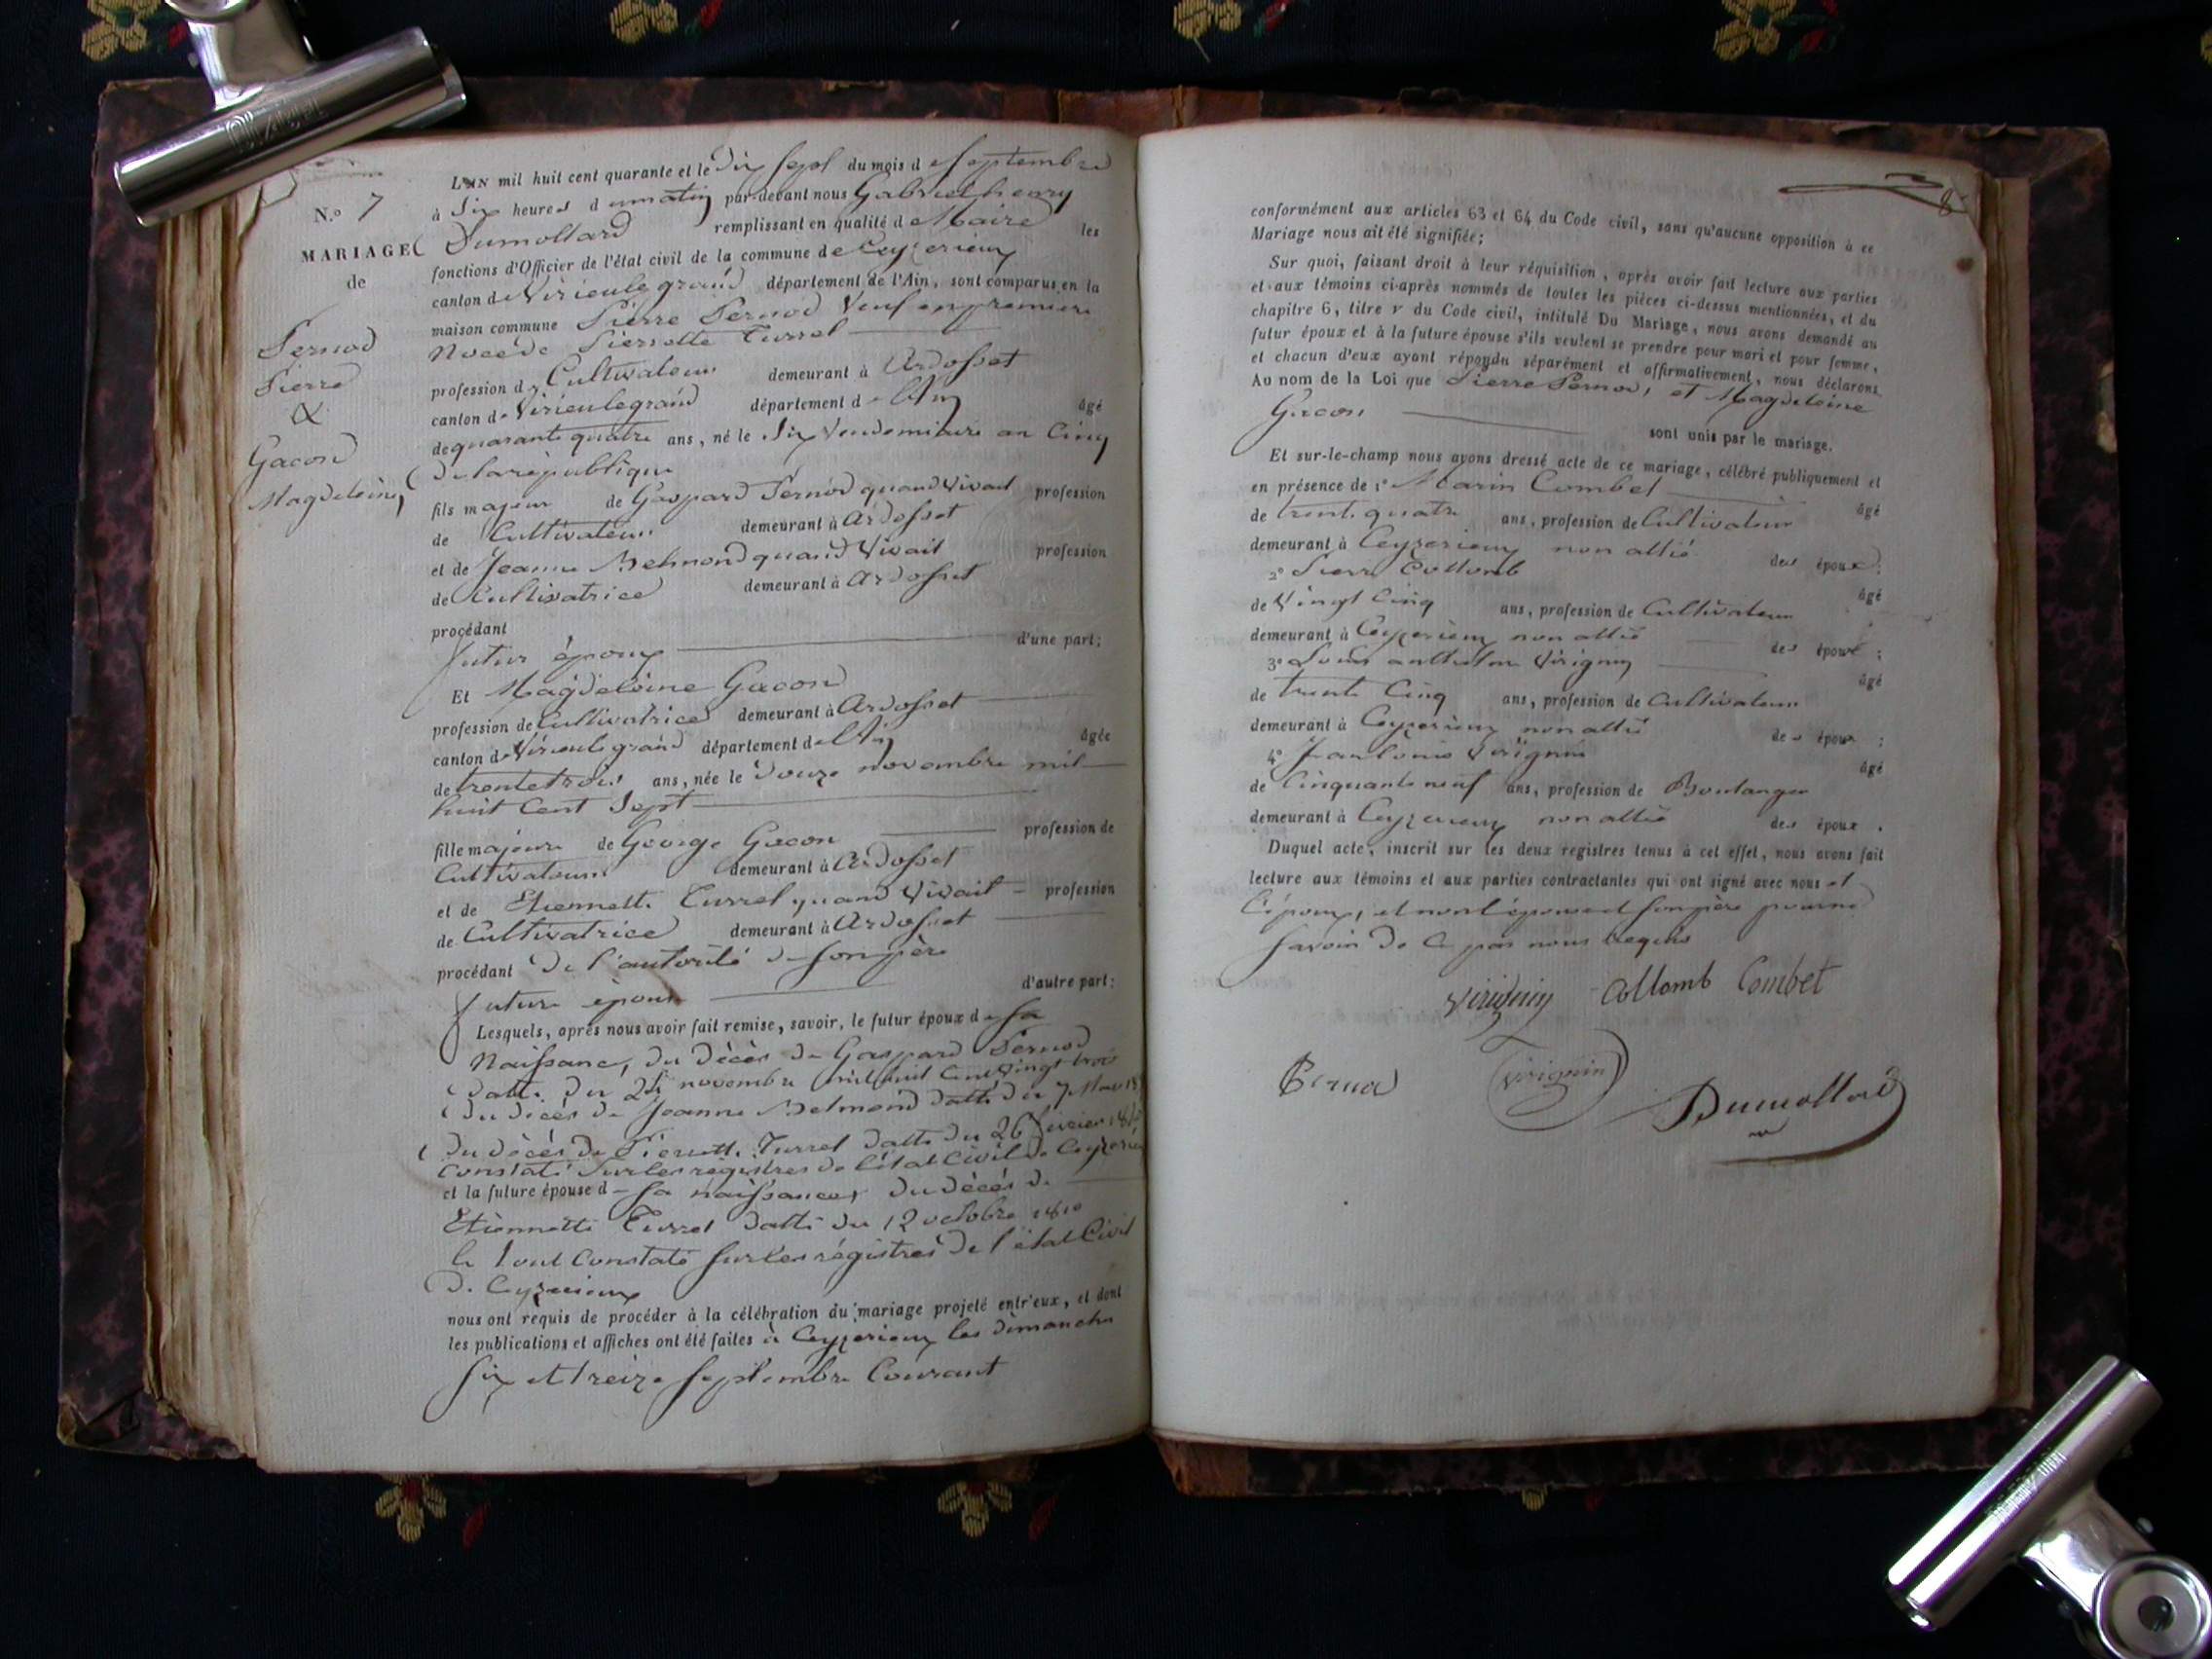 N.° 7
MARIAGE
de
Pernod
Pierre
&
Gacon
Magdeleine
L'AN mil huit cent quarante et le dix sept du mois de septembre
à six heures du matin par-devant nous Gabriel henry
Dumollard remplissant en qualité de Maire les
fonctions d'Officier de l'état civil de la commune de Ceyzerieux
canton de Virieulegrand département de l'Ain, sont comparus en la
maison commune Pierre Pernod Veuf en premiere
Noce de Pierrette Turrel
profession de Cultivateur demeurant à Ardosset
canton de Virieulegrand département de l'Ain âgé
de quarante quatre ans, né le six Vendemiaire an Cinq
de la république
fils majeur de Gaspard Pernod quand Vivait profession
de Cultivateur demeurant à Ardosset
et de Jeanne Belmond quand Vivait profession
de Cultivatrice demeurant à Ardosset
procédant
futur époux d'une part;
Et Magdeleine Gacon
profession de Cultivatrice demeurant à Ardosset
canton de Virieulegrand département de l'Ain âgée
de trente trois ans, née le douze novembre mil
huit Cent sept
fille majeure de George Gacon profession de
Cultivateur demeurant à Ardosset
et de Etiennette Turrel quand Vivait profession
de Cultivatrice demeurant à Ardosset
procédant de l'autorité de son père
future épouse d'autre part;
Lesquels, après nous avoir fait remise, savoir, le futur époux de sa
Naissance, du décès de Gaspard Pernod
datté du 24 novembre mil huit Cent Vingt trois
du décès de Jeanne Belmond datté du 7 Mars
du décès de Pierrette Turrel datté du 26 fevrier
Constaté sur les registres de l'état Civil de Ceyzerieu
et la future épouse de sa naissance, du décès de
Etiennette Turrel datté du 12 octobre 1810
le tout Constaté sur les régistres de l'état Civil
de Ceyzerieux
nous ont requis de procéder à la célébration du mariage projeté entr'eux, et dont
les publications et affiches ont été faites à Ceyzerieux les dimanche
six et treize septembre Courant
8
conformément aux articles 63 et 64 du Code civil, sans qu'aucune opposition à ce
Mariage nous ait été signifiée;
Sur quoi, faisant droit à leur réquisition, après avoir fait lecture aux parties
et aux témoins ci-après nommés de toutes les pièces ci-dessus mentionnées, et du
chapitre 6, titre v du Code civil, intitulé Du Mariage, nous avons demandé au
futur époux et à la future épouse s'ils veulent se prendre pour mari et pour femme,
et chacun d'eux ayant répondu séparément et affirmativement, nous déclarons
Au nom de la Loi que Pierre Pernod, et Magdeleine
Gacon sont unis par le mariage.
Et sur-le-champ nous avons dressé acte de ce mariage, célébré publiquement et
en présence de 1° Marin Combet âgé
de trente quatre ans, profession de Cultivateur
demeurant à Ceyzerieux non allié des époux;
2° Pierre Collomb âgé
de Vingt Cinq ans, profession de Cultivateur
demeurant à Ceyzerieux non allié des époux;
3° Louis anthelme Virignin âgé
de trente Cinq ans, profession de Cultivateur
demeurant à Ceyzerieux non allié des époux;
4° Virignin âgé
de Cinquante neuf ans, profession de Boulanger
demeurant à Ceyzerieux non allié des époux.
Duquel acte, inscrit sur les deux registres tenus à cet effet, nous avons fait
lecture aux témoins et aux parties contractantes qui ont signé avec nous et
L'époux, et non l'épouse et son père pour ne
savoir de ce par nous requis
Virignin Collomb Combet
Pernod Virignin Dumollard